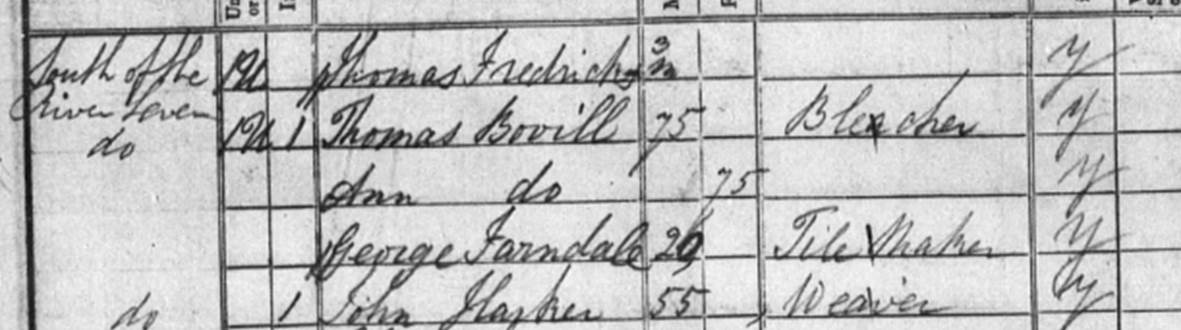 South of the 1 U Thomas Fredricks 3 m y
River Leven
do 1 U 1 Thomas Bovill 75 Bleacher y
Ann do 75 y
George Farndale 20 Tile Maker y
do 1 John 55 Weaver y